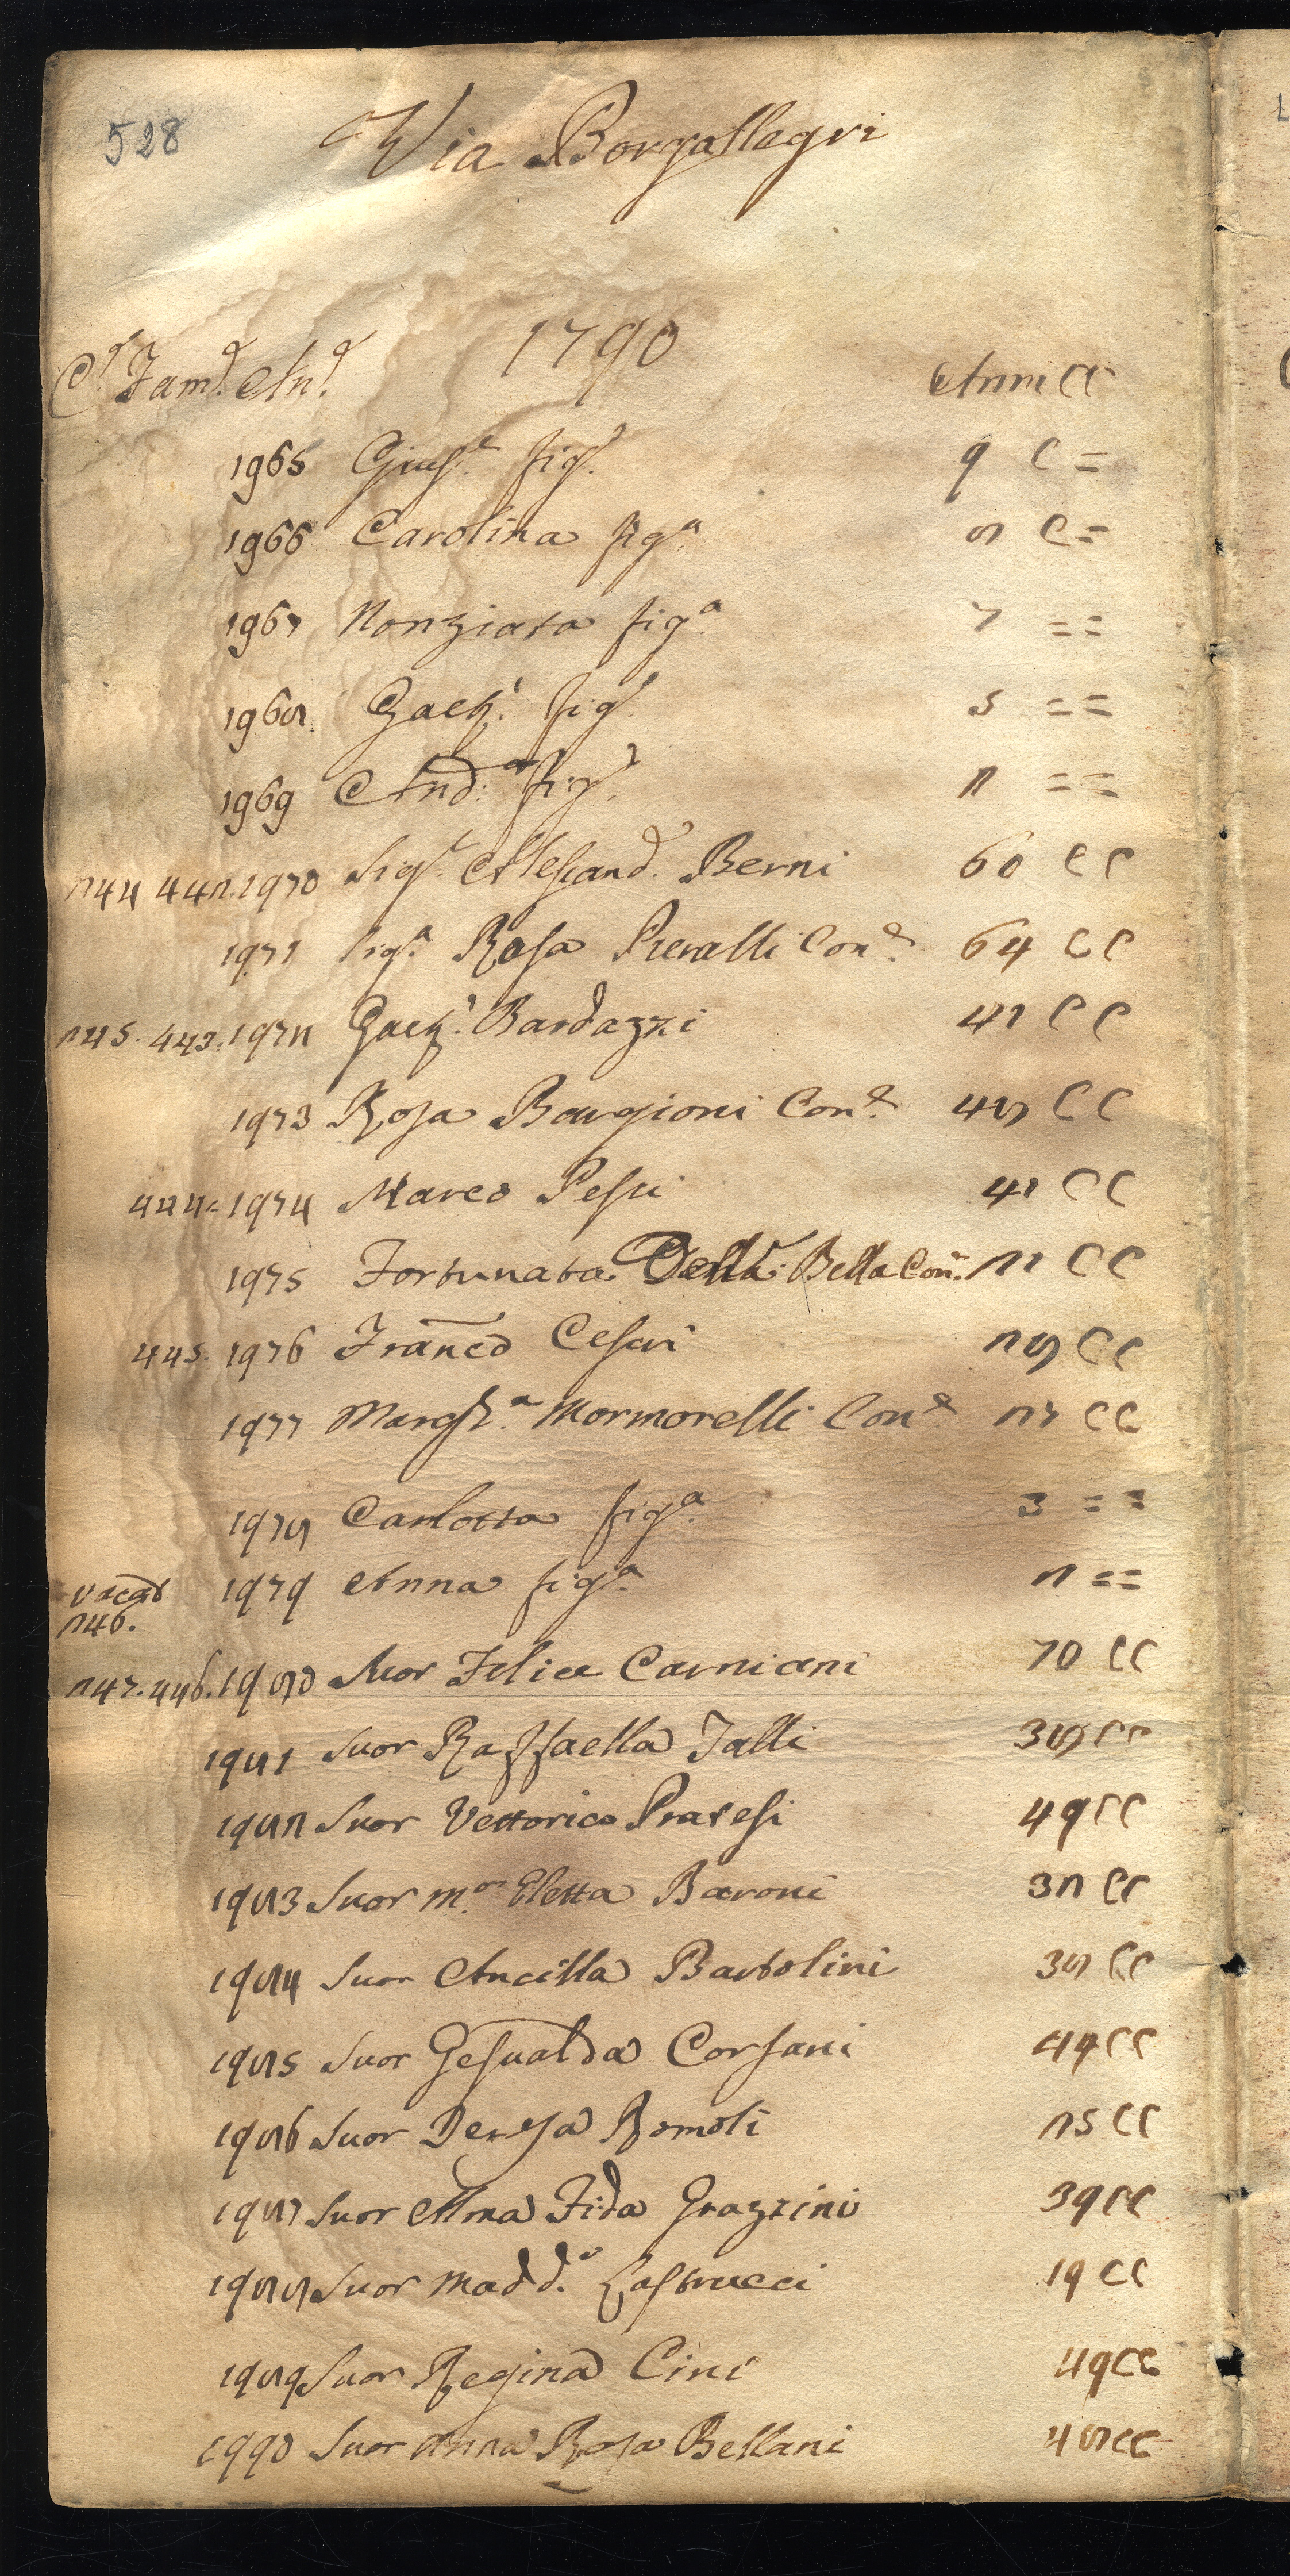 528
Via Borgallegri
1790
C.e Fam.e An.e Anni CC
1965 Gius.e fig.o 9 C =
1966 Carolina fig.a 8 C =
1967 Nonziata fig.a 7 = =
1968 Gaet.o fig.o 5 = =
1969 And.a fig.o 2 = =
244 442. 1970 Sig.r Alessand.o Berni 60 C C
1971 Sig.a Rosa Pieralli Con.e 64 C C
245. 443. 1972 Gaet.o Bardazzi 41 C C
1973 Rosa Bargioni Con.e 48 C C
444. 1974 Marco Pessi 41 C C
1975 Fortunata Della Bella Con.e 21 C C
445. 1976 Franco Cesari 28 C C
1977 Margh.a Mormorelli Con.e 27 C C
1978 Carlotta fig.a 3 = =
1979 Anna fig.a 2 = =
vacat
246.
247. 446. 1980 Suor Felice Carniani 70 CC
1981 Suor Raffaella Talli 38 CC
1982 Suor Vettorica Pratesi 49 CC
1983 Suor M.a Eletta Baroni 32 CC
1984 Suor Ancilla Bartolini 38 CC
1985 Suor Gesualda Corsani 49 CC
1986 Suor Teresa Romoli 25 CC
1987 Suor Alma Fida Grazzini 39 CC
1988 Suor Madd.a Lastrucci 19 CC
1989 Suor Regina Cini 49 CC
1990 Suor Anna Rosa Bellani 48 CC